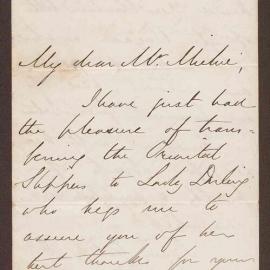 My dear Mr. Michie,
I have just had
the pleasure of trans-
ferring the Oriental
Slippers to Lady Darling
who begs me to
assure you of her
best thanks for your